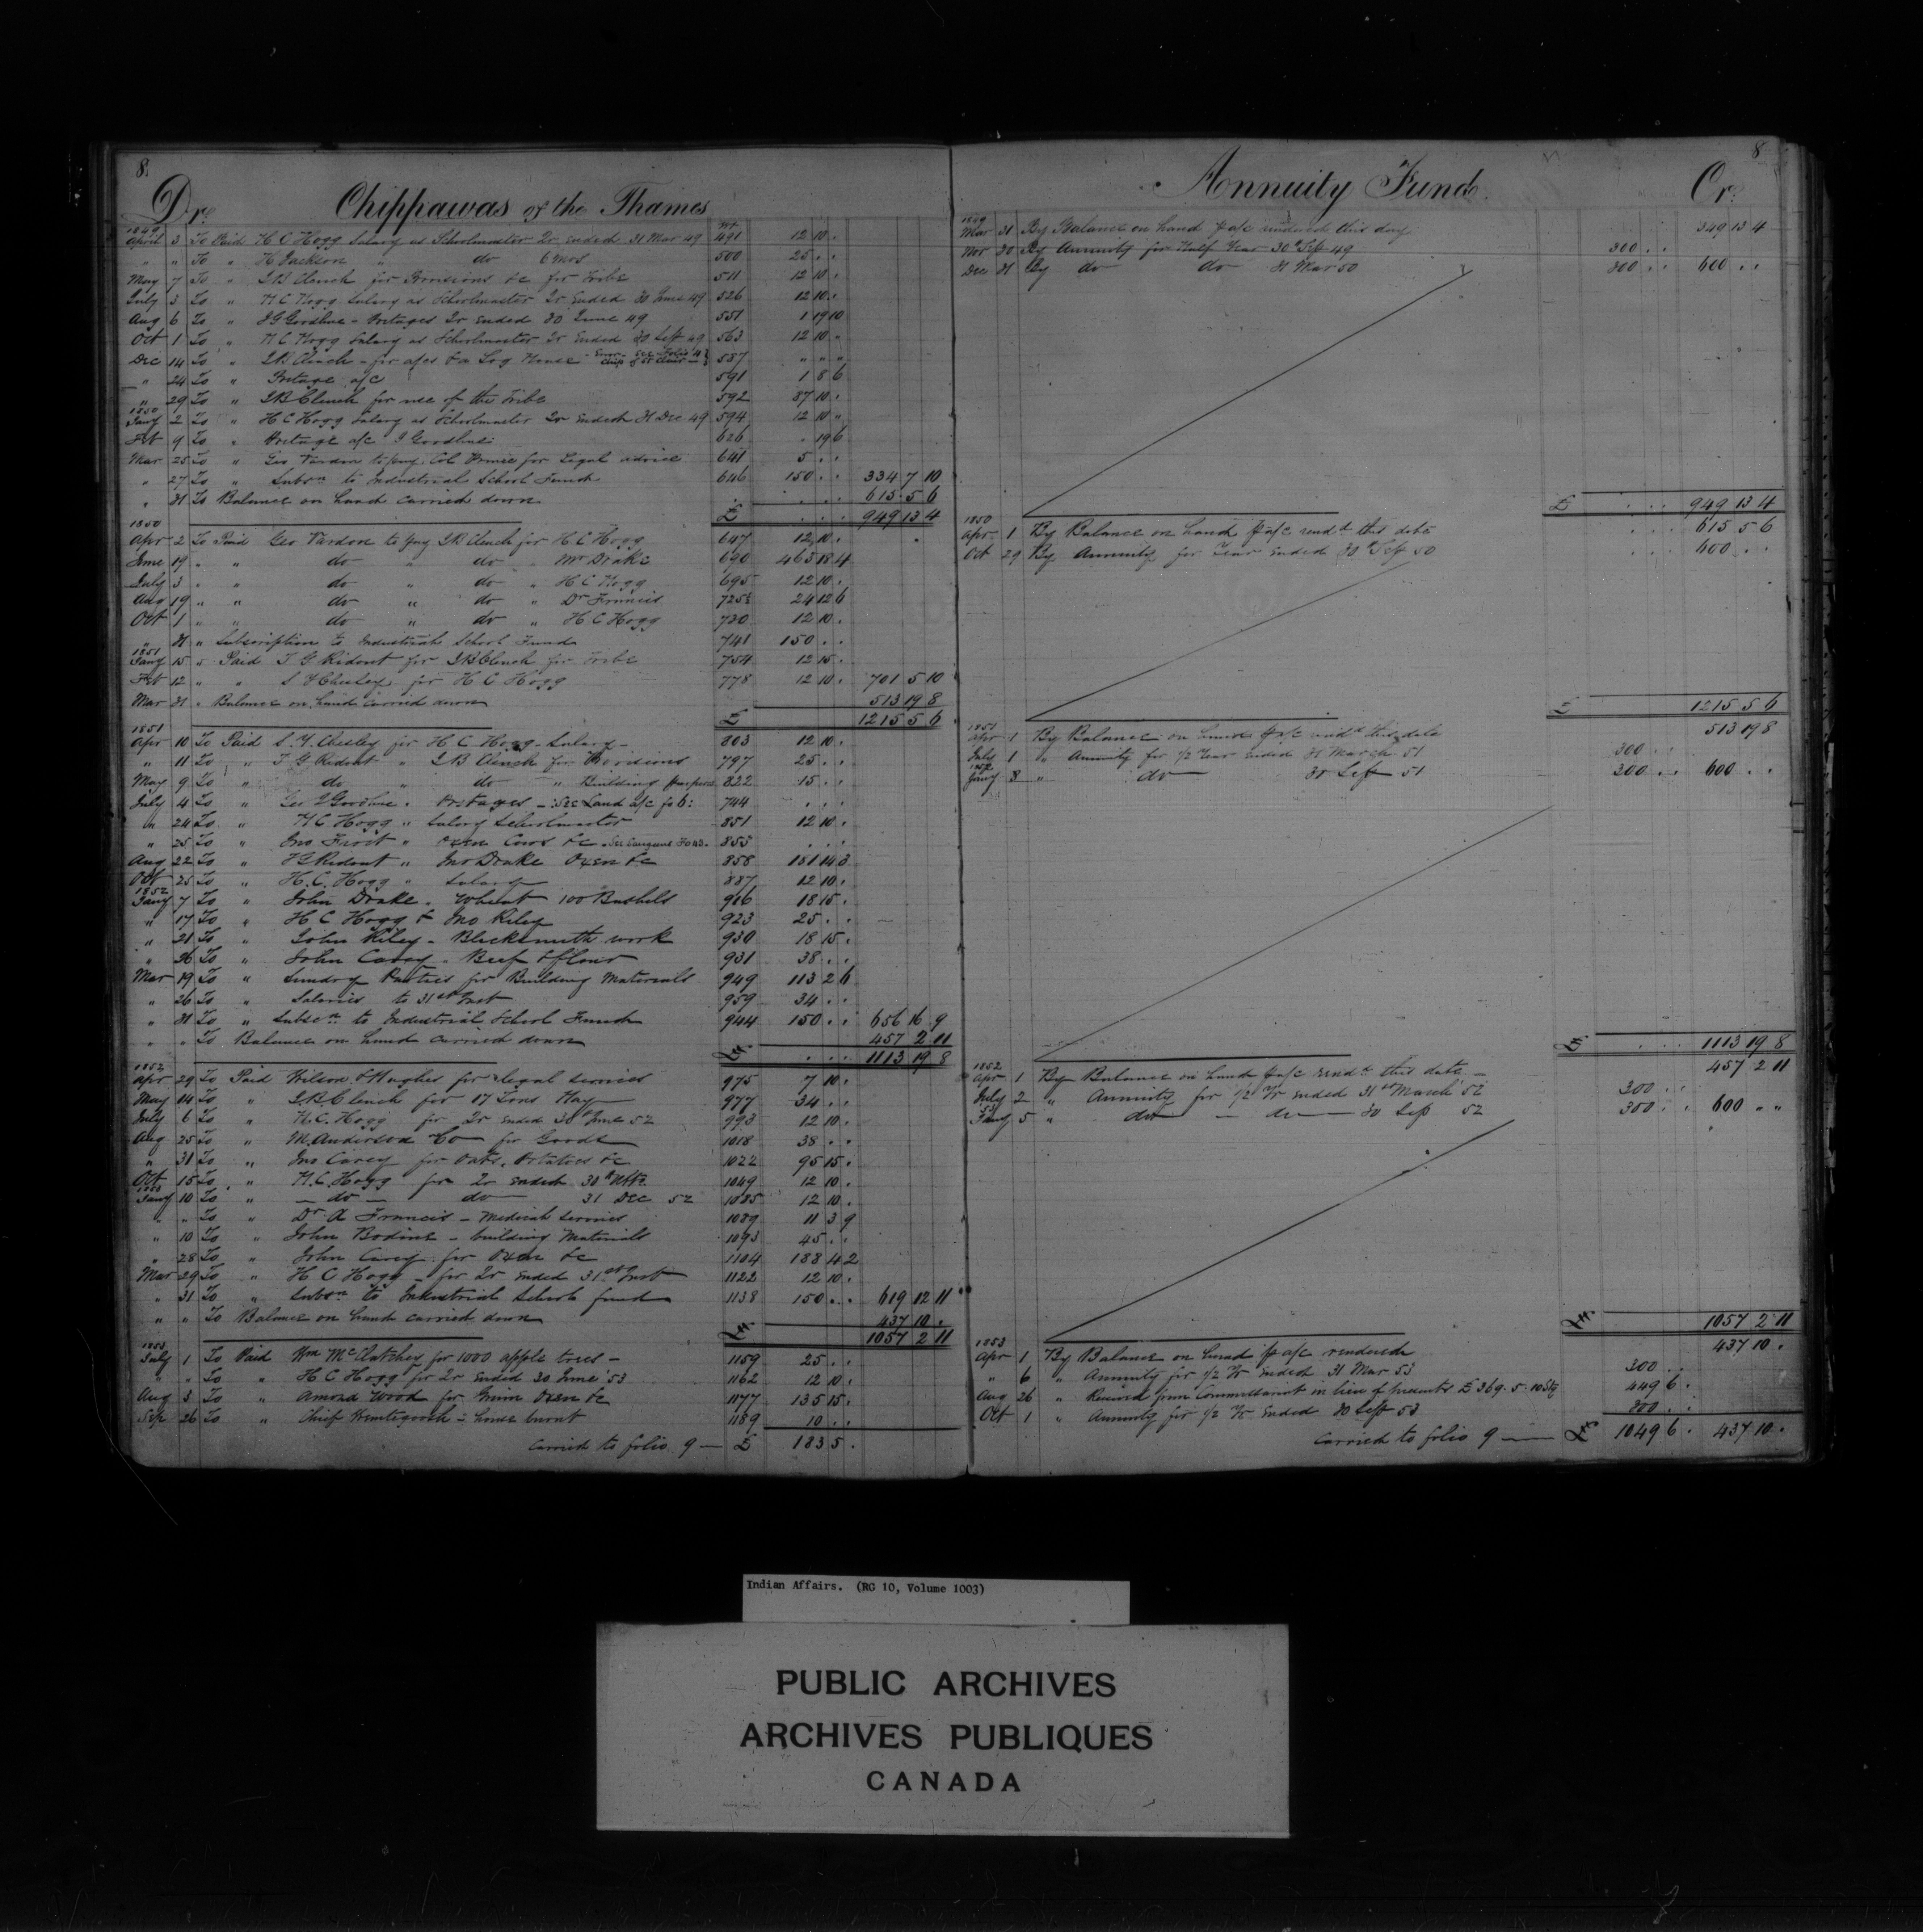 8.
Dr. Chippawas of the Thames
1849
April 3 To Paid H C Hogg Salary as Schoolmaster Qr ended 31 Mar 49 491 12 10 .
" " To " H Jackson " do 6 mos 500 25 . .
May 7 To " J B Clench for Provisions &c for Tribe 511 12 10 .
July 3 To " H C Hogg Salary as Schoolmaster Qr Ended 30 June 49 526 12 10 .
Aug 6 To " J G Goodhue - Postages Qr ended 30 June 49 551 1 19 10
Oct 1 To " H C Hogg Salary as Schoolmaster Qr Ended 30 Sept 49 563 12 10 "
Dec 14 To " J B Clench - for a/cs for Log House - Error See Folio Chip of St Clair 587 " " "
" 24 To " Postage a/c 591 1 8 6
" 29 To " J B Clench for use of the Tribe 592 87 10 .
1850
Jany 2 To " H C Hogg Salary as Schoolmaster Qr Ended 31 Dec 49 594 12 10 "
Feb 9 To " Postage a/c J Goodhue 626 . 19 6
Mar 25 To " Geo Vardon to pay Col Prince for Legal advice 641 5 . .
" 27 To " Subsn to Industrial School Fund 646 150 . . 334 7 10
" 31 To Balance on hand carried down 615 5 6
£ 949 13 4
1850
Apr 2 To Paid Geo Vardon to pay J B Clench for H C Hogg 647 12 10 .
June 19 " " do " do " Mr Drake 690 463 18 4
July 3 " " do " do " H C Hogg 695 12 10 .
Aug 19 " " do " do " Dr Francis 725½ 24 12 6
Oct 1 " " do " do " H C Hogg 730 12 10 .
" 31 " Subscription to Industrial School Fund 741 150 . .
1851
Jany 15 " Paid T G Ridout for J B Clench for Tribe 754 12 15 .
Feb 12 " " S Y Chesley for H C Hogg 778 12 10 . 701 5 10
Mar 31 " Balance on hand carried down 513 19 8
£ 1215 5 6
1851
Apr 10 To Paid S. Y. Chesley for H C Hogg - Salary - 803 12 10 .
" 11 To " T G Ridout " J B Clench for Provisions 797 25 . .
May 9 To " do " do " Building purposes 822 15 . .
July 4 To " Geo J Goodhue " Postages - See Land a/c fo 6: 744 . . .
" 24 To " H C Hogg " Salary Schoolmaster 851 12 10 .
" 25 To " Jno Frost " Oxen Cows &c - See Saugeens Fo 43. 853 . . .
Aug 22 To " T G Ridout " Jno Drake Oxen &c 858 181 14 3
Oct 25 To " H. C. Hogg " Salary 887 12 10 .
1852
Jany 7 To " John Drake - Wheat 100 Bushels 916 18 15 .
" 17 To " H C Hogg & Jno Riley 923 25 . .
" 21 To " John Riley - Blacksmith work 930 18 15 .
" 26 To " John Carey - Beef & flour 931 38 . .
Mar 19 To " Sundry Parties for Building Materials 949 113 2 6
" 26 To " Salaries to 31st Inst 959 34 . .
" 31 To " Subscn to Industrial School Fund 944 150 . . 656 16 9
" " To Balance on hand carried down 457 2 11
£ 1113 19 8
1852
Apr 29 To Paid Wilson & Hughes for legal services 975 7 10 .
May 14 To " J B Clench for 17 Tons Hay 977 34 . .
July 6 To " H. C. Hogg for Qr ended 30 June 52 993 12 10 .
Aug 25 To " M. Anderson & Co for Goods 1018 38 . .
" 31 To " Jno Carey for Oats, Potatoes &c 1022 95 15 .
Oct 15 To " H. C. Hogg for Qr ended 30th Ulto 1049 12 10 .
1853
Jany 10 To " - do - do 31 Dec 52 1085 12 10 .
" " To " Dr A Francis - Medical Services 1089 11 3 9
" 10 To " John Bodine - building Materials 1093 45 . .
" 28 To " John Carey for Oxen &c 1104 188 4 2
Mar 29 To " H C Hogg - for Qr ended 31st Inst 1122 12 10 .
" 31 To " Subsn to Industrial Schools fund 1138 150 . . 619 12 11
" " To Balance on hand carried down 437 10 .
£ 1057 2 11
1853
July 1 To Paid Wm McClatchey for 1000 apple trees - 1159 25 . .
" " To " H C Hogg for Qr ended 30 June 53 1162 12 10 .
Aug 3 To " Wood for Oxen &c 1177 135 15 .
Sep 26 To " Chief - house burnt 1189 10 . .
Carried to folio 9 - £ 183 5 .
8
Annuity Fund. Cr.
1849
Mar 31 By Balance on hand p a/c rendered this day 349 13 4
Nov 30 By Annuity for Half Year 30th Sep 49 300 . .
Dec 31 By do do 31 Mar 50 300 . . 600 . .
£ 949 13 4
1850
Apr 1 By Balance on hand p a/c rendd this date 615 5 6
Oct 29 By Annuity for Year Ended 30th Sep 50 600 . .
£ 1215 5 6
1851
Apr 1 By Balance on hand p a/c rendd this date 513 19 8
July 1 " Annuity for 1/2 Year Ended 31 March 51 300 . .
1852
Jany 8 " do 30 Sept 51 300 . . 600 . .
£ 1113 19 8
1852
Apr 1 By Balance on hand p a/c rendd this date - 457 2 11
July 2 " Annuity for 1/2 Yr ended 31st March 52 300 . .
53
Jany 5 " do - do - 30 Sep 52 300 . . 600 " "
£ 1057 2 11
1853
Apr 1 By Balance on hand p a/c rendered 437 10 .
" 6 " Annuity for 1/2 Yr ended 31 Mar 53 300 . .
Aug 26 " Received from Commissariat in lieu of Presents £369. 5. 10 Stg 449 6 .
Oct 1 " Annuity for 1/2 Yr Ended 30 Sept 53 300 . .
Carried to folio 9 - £ 1049 6 . 437 10 .
Indian Affairs. (RG 10, Volume 1003)
PUBLIC ARCHIVES
ARCHIVES PUBLIQUES
CANADA